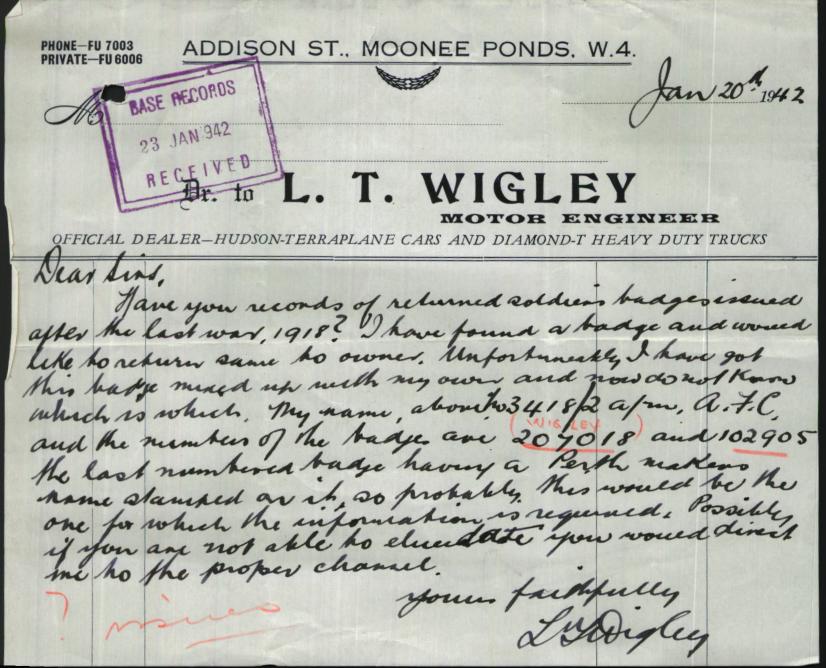 PHONE—FU 7003
PRIVATE—FU 6006
ADDISON ST., MOONEE PONDS, W.4.
Jan 20th 1942
M
BASE RECORDS
23 JAN 942
RECEIVED
Dr. to L. T. WIGLEY
MOTOR ENGINEER
OFFICIAL DEALER—HUDSON-TERRAPLANE CARS AND DIAMOND-T HEAVY DUTY TRUCKS
Dear Sirs,
Have you records of returned soldiers badges issued
after the last war, 1918? I have found a badge and would
like to return same to owner. Unfortunately I have got
this badge mixed up with my own and now do not know
which is which. My name, above No 3418/2 a/m, A.F.C,
(WIGLEY)
and the numbers of the badges are 207018 and 102905
the last numbered badge having a Perth makers
name stamped on it, so probably this would be the
one for which the information is required. Possibly
if you are not able to elucidate you would direct
me to the proper channel.
Yours faithfully
L T Wigley
?